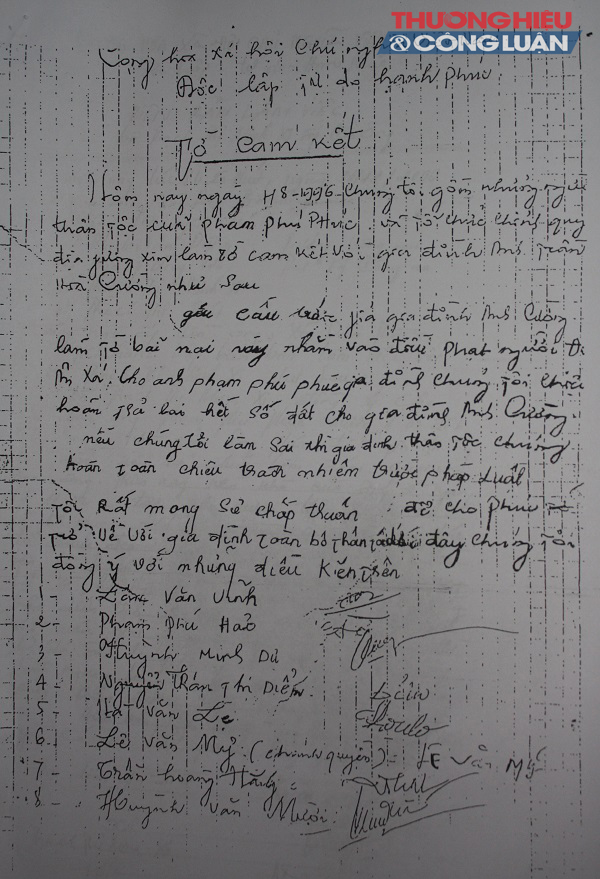 THƯƠNG HIỆU
& CÔNG LUẬN
Cộng hòa xã hội Chủ ngh
Độc lập tự do hạnh phúc
Tờ Cam Kết
Hôm nay ngày 8-1996 chúng tôi gồm những người
thân tộc của phạm phú phúc và tổ chức chính quy
địa phương xin làm tờ cam kết với gia đình Anh Trần
Cường như sau
yêu cầu gia đình Anh Cường
làm tờ bãi nại này nhằm vào điều phạt người
Cho anh phạm phú phúc gia đình chúng tôi
hoàn trả lại hết số đất cho gia đình Anh Cường.
nếu chúng tôi làm sai thì gia đình thân tộc chúng
hoàn toàn chiêu trách nhiêm trước pháp Luật
Rất mong sự chấp thuận để cho phúc
về với gia đình toàn bộ thân đây chúng tôi
đồng ý với những điều kiện trên
1 - Văn Vinh
2 - Phạm Phú Hảo
3 - Huỳnh Minh Dũ
4 - Nguyễn Thị Diễm
5 - Văn
6 - Lê Văn Mỹ (chính quyền) - LÊ Văn Mỹ
7 - Trần hoàng
8 - Huỳnh Văn Mười